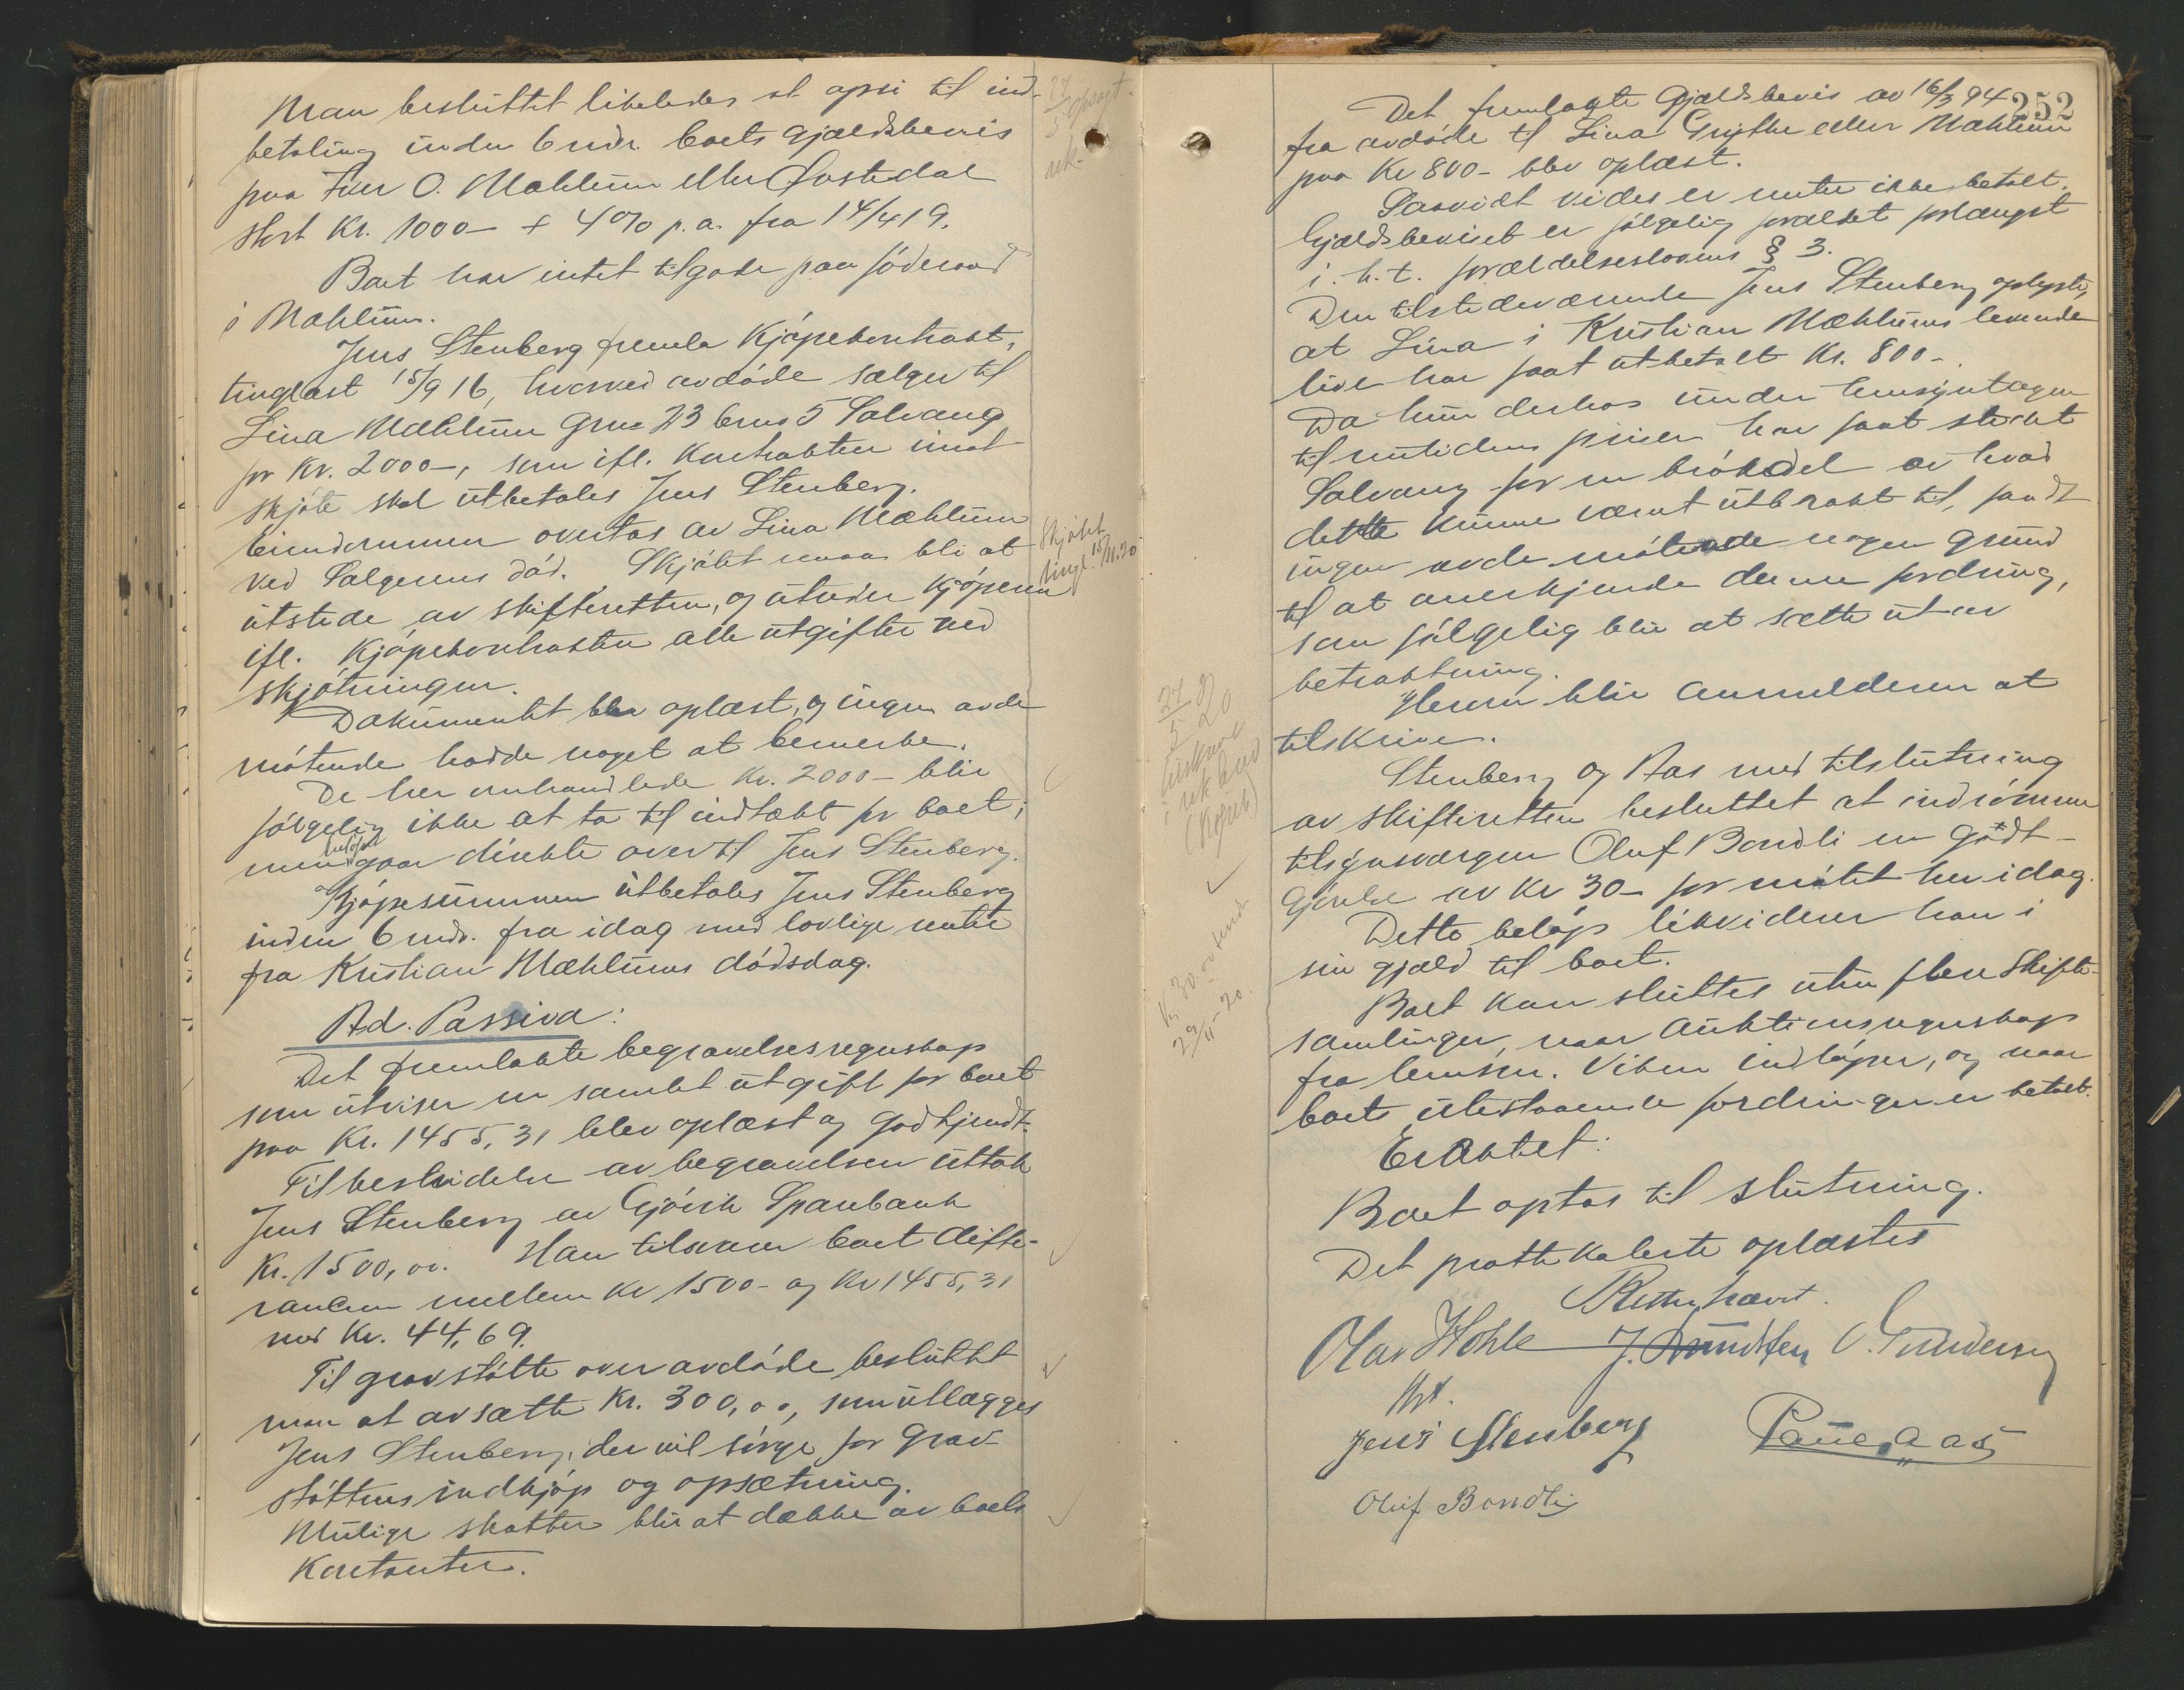 Man besluttet likeledes at opsi til ind-
betaling inden 6 mdr. boets gjældsbevis
paa Iver O. Mæhlum eller Østedal
stort Kr. 1000- + 4% p.a. fra 14/4 19.
Boet har intet tilgode paa føderaad
i Mæhlum.
Jens Stenberg fremla Kjøpekontrakt,
tinglæst 15/9 16, hvorved avdøde sælger til
Lina Mæhlum Gno 23 bno 5 Solvang
for Kr. 2000-, som ifl. Kontrakten imot
skjøte skal utbetales Jens Stenberg.
Eiendommen overtas av Lina Mæhlum
ved Sælgerens død. Skjøtet maa bli at
utstede av skifteretten, og utreder Kjøperen
ifl. Kjøpekontrakten alle utgifter ved
skjøtningen.
Dokumentet blev oplæst, og ingen av de
møtende hadde noget at bemerke.
De her omhandlede Kr. 2000- blir
følgelig ikke at ta til indtækt for boet;
men beløpet gaar direkte over til Jens Stenberg.
Kjøpesummen utbetales Jens Stenberg
inden 6 mdr. fra idag med lovlige rente
fra Kristian Mæhlums dødsdag.
Ad. Passiva:
Det fremlakte begravelsesregnskap
som utviser en samlet utgift for boet
paa Kr. 1455,31 blev oplæst og godkjendt.
Til bestridelse av begravelsen uttok
Jens Stenberg av Gjøvik Sparebank
Kr. 1500,00. Han tilsvarer boet diffe-
rancen mellem Kr 1500- og Kr 1455,31
med Kr. 44,69.
Til gravstøtte over avdøde besluttet
man at avsætte Kr. 300,00, som utlægges
Jens Stenberg, der vil sørge for Grav-
støttens indkjøp og opsætning.
Mulige skatter blir at dække av boets
Kontanter.
27/5 opsagt.
rek.
Skjøtet
tingl. 15/11.20
252
Det fremlagte Gjældsbevis av 16/3 94
fra avdøde til Lina eller Mæhlum
paa Kr 800- blev oplæst.
Saavidt vides er renter ikke betalt.
Gjældsbeviset er følgelig forældet forlængst
i. h. t. forældelseslovens § 3.
Den tilstedeværende Jens Stenberg oplyste,
at Lina i Kristian Mæhlums levende
live har faat utbetalt Kr. 800-.
Da hun derhos under hensyntagen
til nutidens priser har faat skjøtet
Solvang for en brøkdel av hvad
dette kunne været utbrakt til, fandt
ingen av de møtende nogen grund
til at anerkjende denne fordring,
som følgelig blir at sætte ut av
betraktning.
Herom blir anmelderen at
tilskrive.
Stenberg og Aas med tilslutning
av skifteretten besluttet at indrømme
tilsynsværgen Oluf Bondli en godt-
gjørelse av Kr 30- for møtet her idag.
Dette beløp likviderer han i
sin gjæld til boet.
Boet kan sluttes uten flere Skifte-
samlinger, naar Auktionsregnskap
fra lensm. Viken indløper, og naar
boets utestaaende fordringer er betalt.
Eraktet:
Boet optas til slutning.
Det protokolerte oplæstes
Retten hævet.
Olav Hohle J. Amundsen O. Gundersen
fst.
Jens Stenberg Paul Aas
Oluf Bondli
27/5 20
tilskrevet
i rek brev
(Kopieb)
Kr 30- sendt
29/11-20.